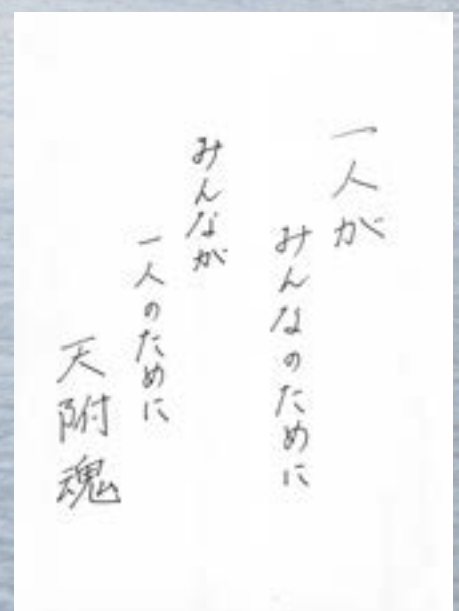 一人が
みんなのために
みんなが
一人のために
天附魂